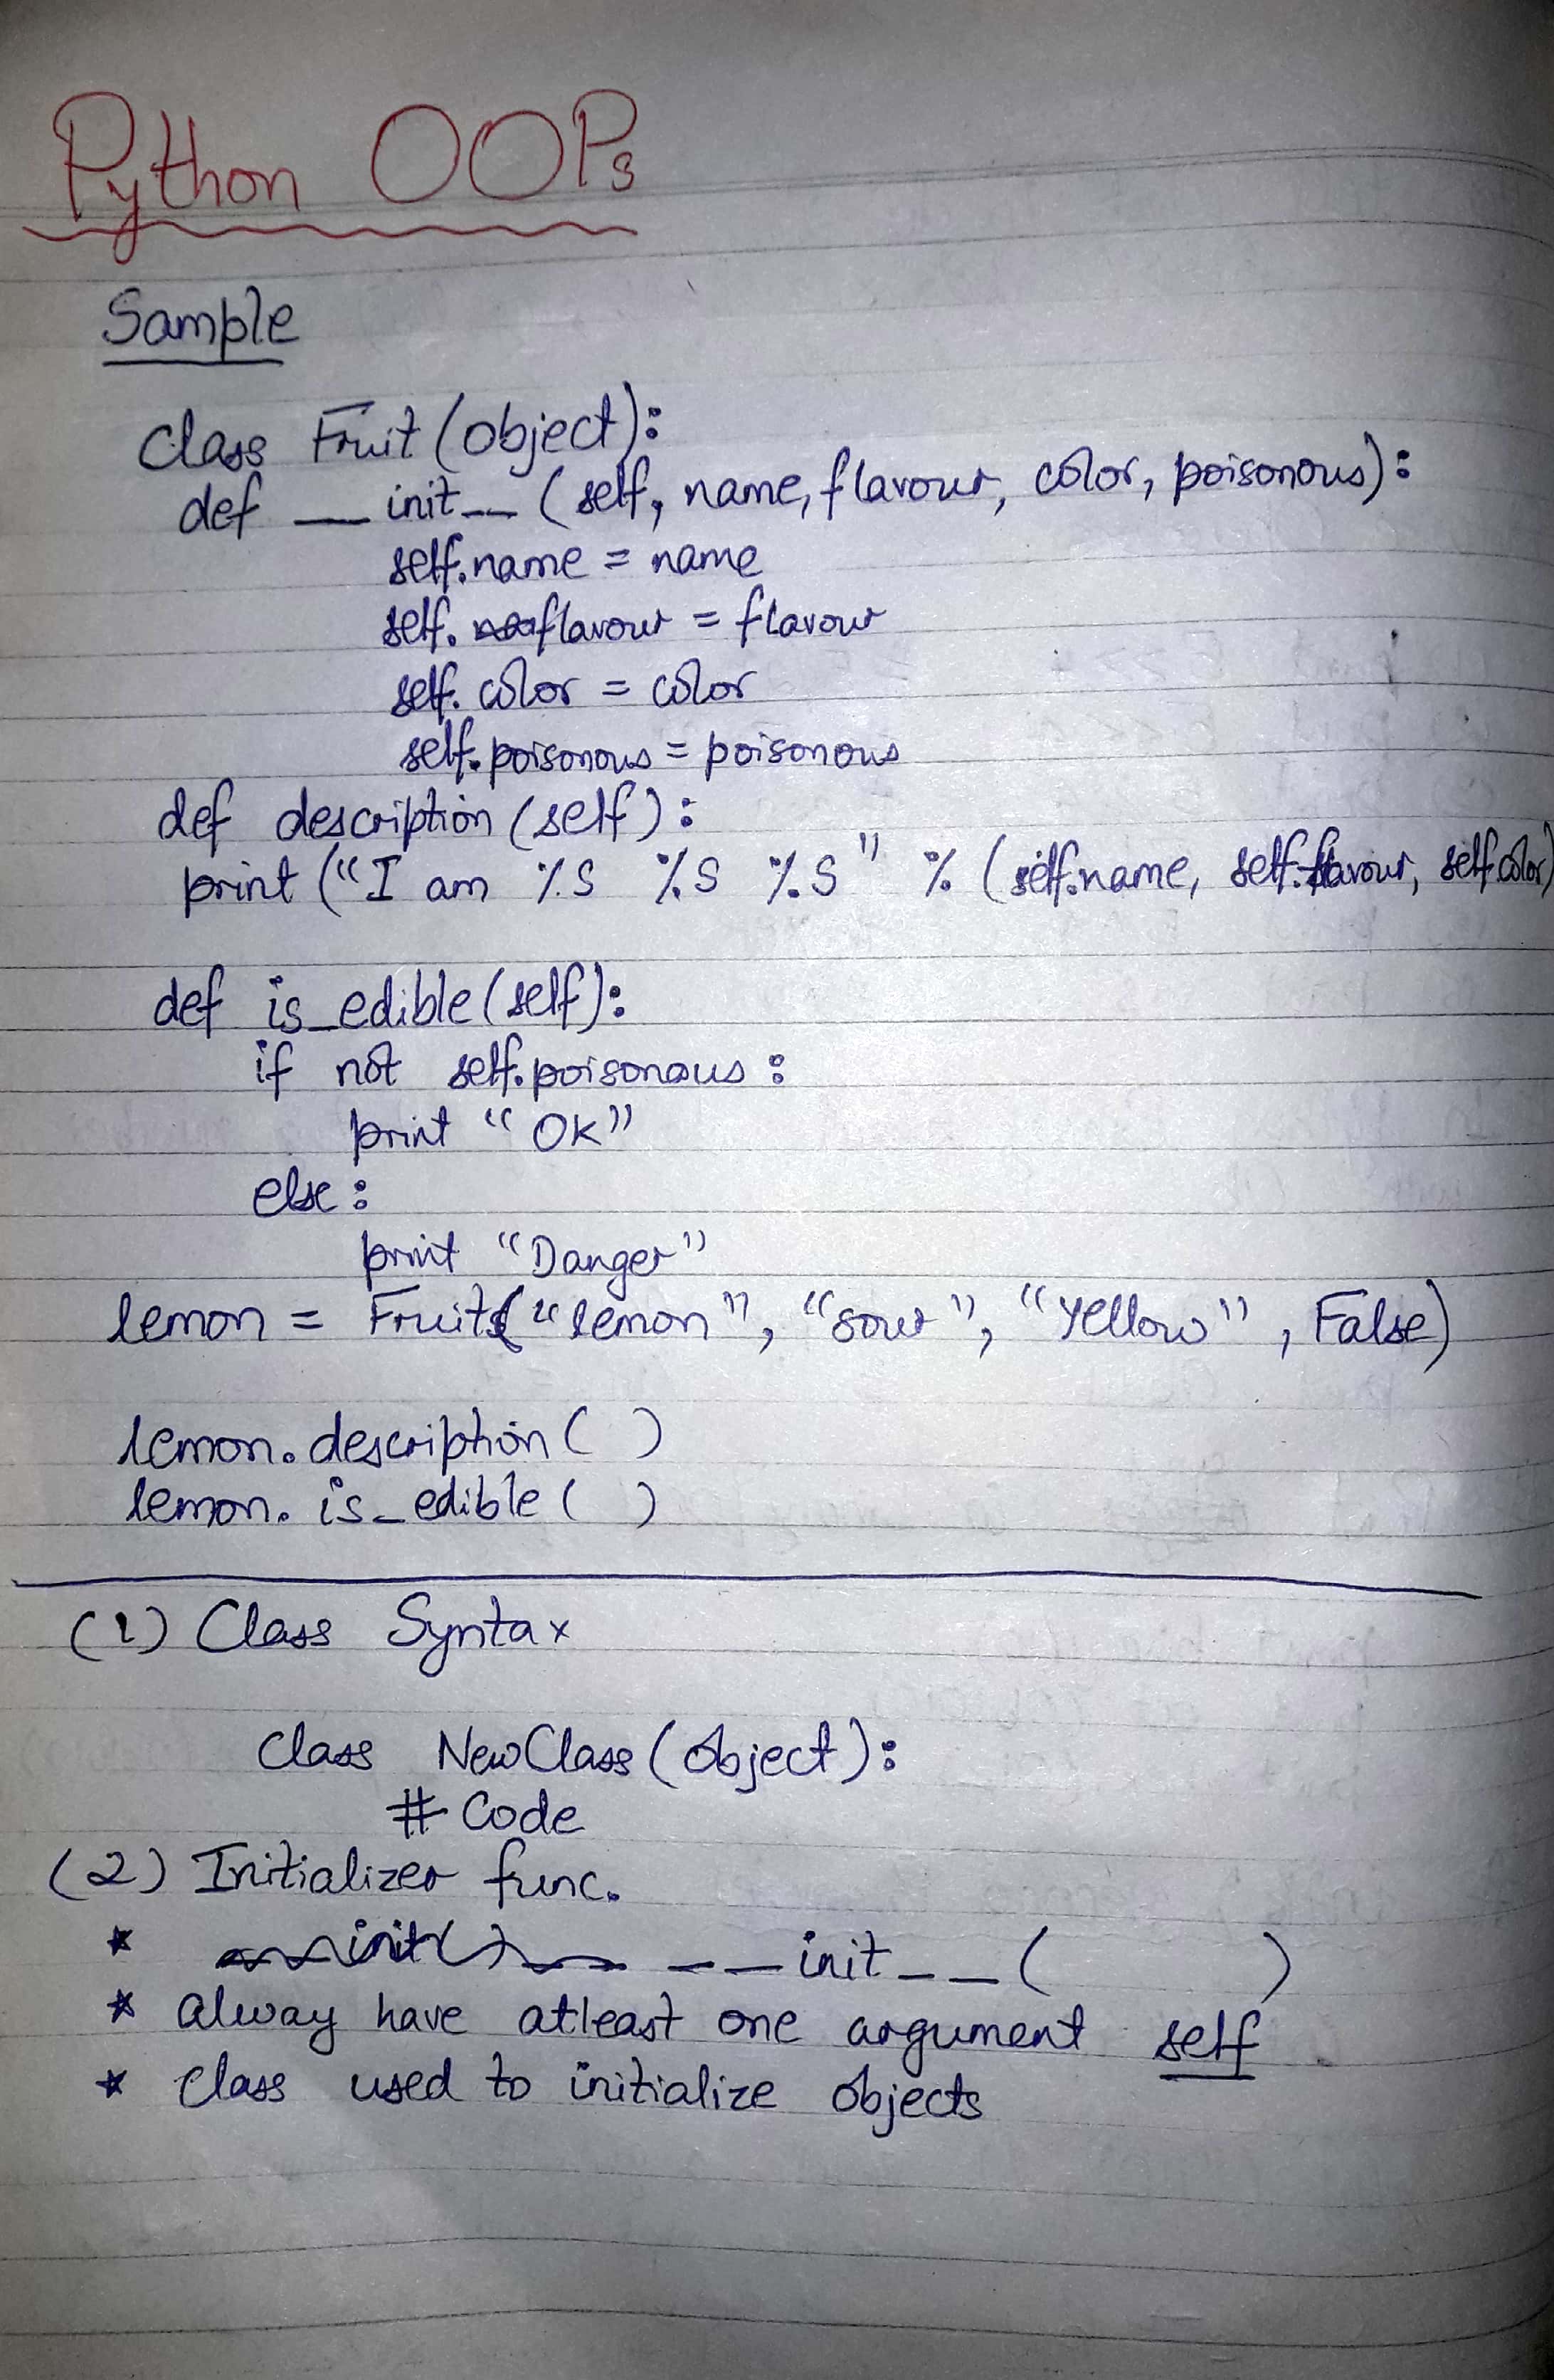 Python OOPs
Sample
class Fruit (object):
def __init__ (self, name, flavour, color, poisonous):
self.name = name
self.flavour = flavour
self.color = color
self.poisonous = poisonous
def description (self):
print ("I am %s %s %s" % (self.name, self.flavour, self.color)
def is_edible (self):
if not self.poisonous:
print "OK"
else:
print "Danger"
lemon = Fruit("lemon", "sour", "yellow", False)
lemon.description ( )
lemon.is_edible ( )
(1) Class Syntax
class NewClass (object):
# Code
(2) Initializer func.
* __init__ ( )
* alway have atleast one argument self
* class used to initialize objects